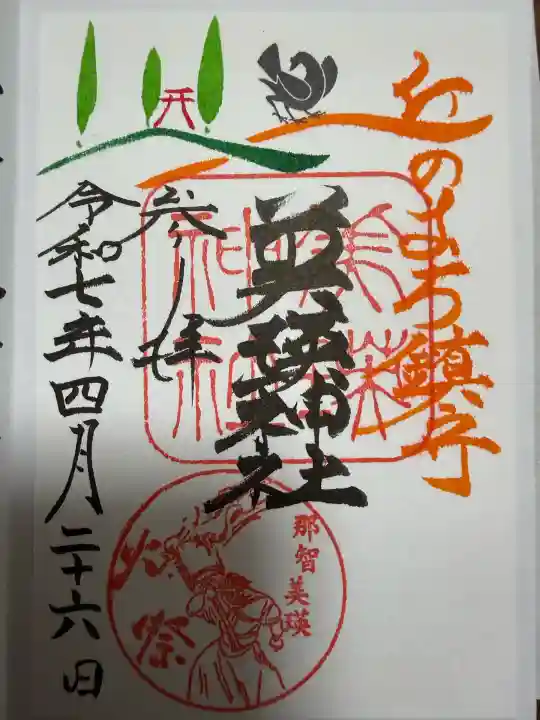 丘のまち鎮守
美瑛神社
参拝
令和七年四月二十六日
那智美瑛
火祭